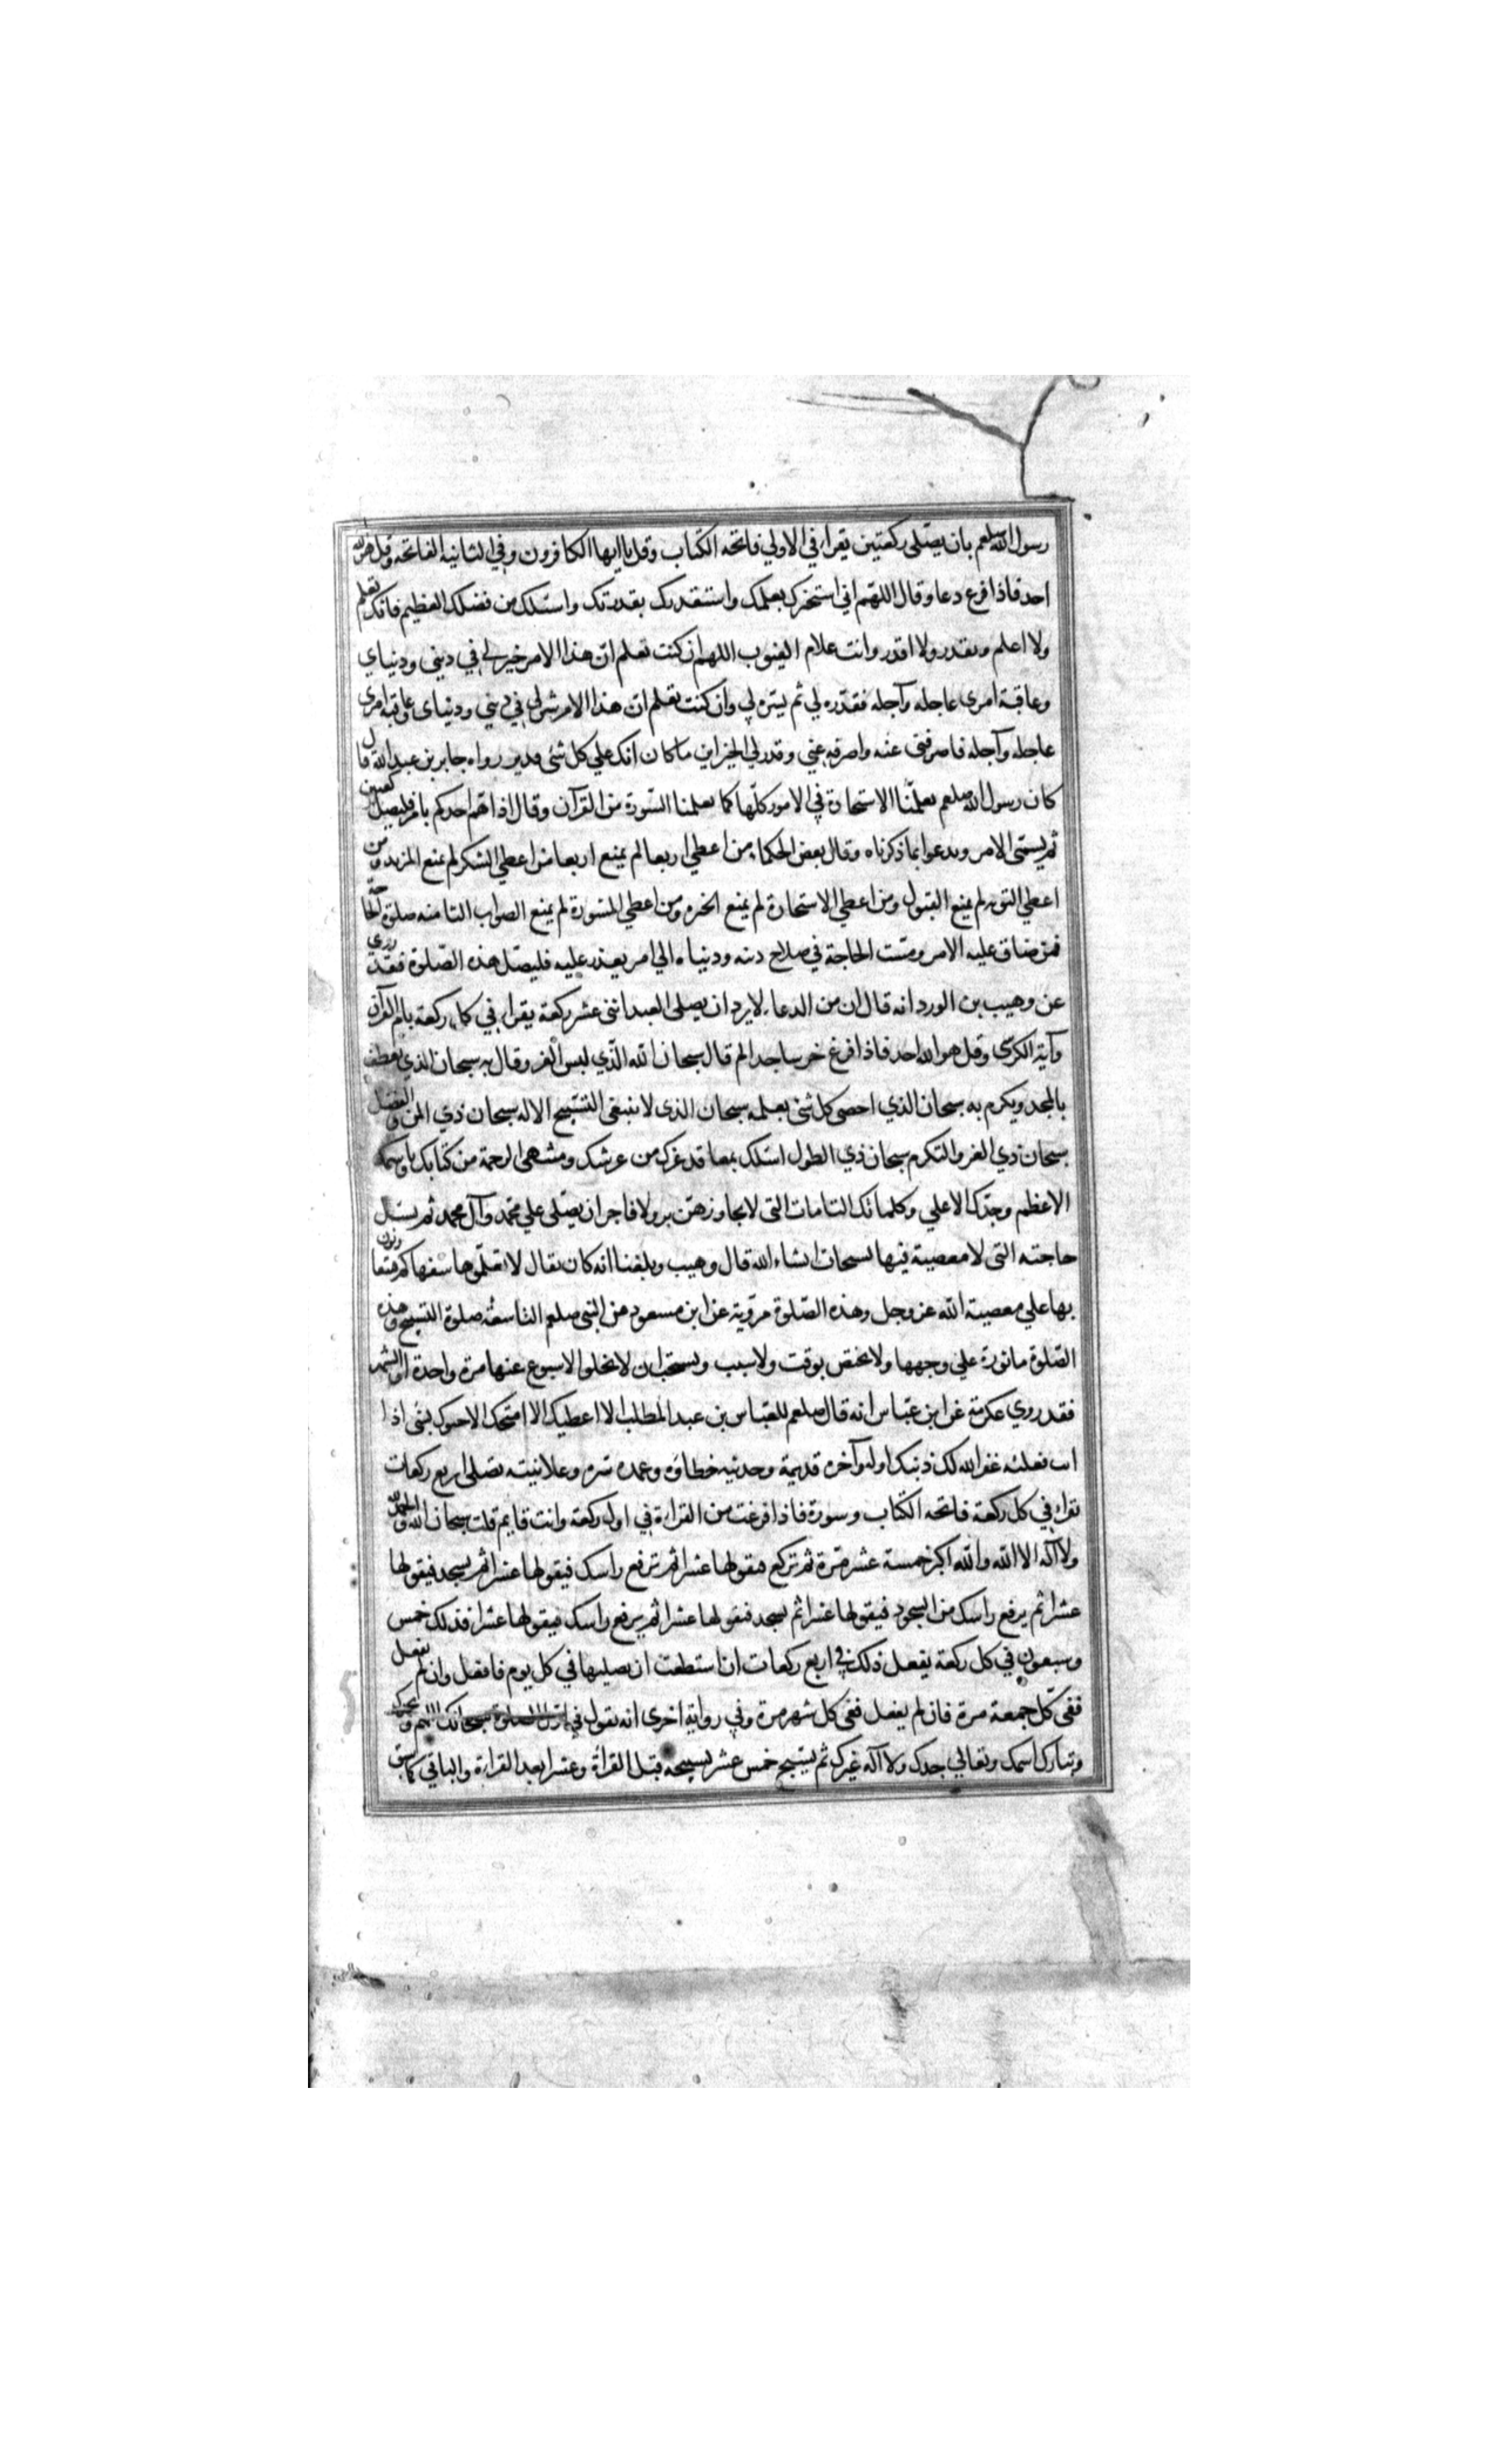 رسول الله صلعم بان يصلى ركعتين يقراء في الاولي فاتحة الكتاب وقل يا ايها الكافرون وفي الثانيه الفاتحه وقل هو الله
احد فاذا فرغ دعا وقال اللهم اني استخيرك بعلمك واستقدرك بقدرتك واسئلك من فضلك العظيم فانك تعلم
ولا اعلم وتقدر ولا اقدر وانت علام الغيوب اللهم ان كنت تعلم ان هذا الامر خير لي في ديني ودنياي
وعاقبة امرى عاجله وآجله فقدره لي ثم يسره لي وان كنت تعلم ان هذا الامر شر لي في ديني ودنياى وعاقبه امرى
عاجله وآجله فاصرفنى عنه واصرفه عني وقدر لي الخير اين ما كان انك علي كل شئ قدير رواه جابر بن عبد الله قال
كان رسول الله صلعم يعلمنا الاستخارة في الامور كلها كما يعلمنا السورة من القرآن وقال اذا هم احدكم بامر فليصل ركعتين
ثم يسمى الامر ويدعوا بما ذكرناه وقال بعض الحكماء من اعطي اربعا لم يمنع اربعا من اعطي الشكر لم يمنع المزيد ومن
اعطي التوبه لم يمنع القبول ومن اعطي الاستخارة لم يمنع الخيره ومن اعطي المشورة لم يمنع الصواب الثامنه صلوة الحاجة
فمن ضاق عليه الامر ومست الحاجة في صلاح دينه ودنياه الي امر تعذر عليه فليصل هذه الصلوة فقد روى
عن وهيب بن الورد انه قال ان من الدعاء لا يرد ان يصلى العبد اثنى عشر ركعة يقراء في كل ركعة بام القرآن
وآية الكرسي وقل هو الله احد فاذا فرغ خر ساجدا لم قال سبحان الله الذي لبس العز وقال به سبحان الذي تعطف
بالمجد ويكرم به سبحان الذي احصى كل شئ بعلمه سبحان الذى لا ينبغى التسبيح الا له سبحان ذي المن والفضل
سبحان ذي العز والتكرم سبحان ذي الطول اسئلك بمعاقد عزك من عرشك ومنتهى الرحمة من كتابك وباسمك
الاعظم وجدك الاعلي وكلماتك التامات التى لا يجاوزهن بر ولا فاجر ان يصلى علي محمد وآل محمد ثم يسئل
حاجته التى لا معصية فيها يسبحات انشاء الله قال وهيب وبلغنا انه كان يقال لا تعلموها سفهاكم فيتعاونون
بها علي معصية الله عز وجل وهذه الصلوة مروية عن ابن مسعود من النبى صلعم التاسعة صلوة التسبيح وهذه
الصلوة ماثورة علي وجهها ولا يختص بوقت ولا سبب ويستحب ان لا يخلوا الاسبوع عنها مرة واحدة او الشهر
فقد روي عكرمة عن ابن عباس انه قال صلعم للعباس بن عبد المطلب الا اعطيك الا امنحك الا احبوك بشئ اذا
انت فعلته غفر الله لك ذنبك اوله وآخره قديمة وحديثه خطاؤه وعمده سره وعلانيته تصلى اربع ركعات
تقراء في كل ركعة فاتحه الكتاب وسورة فاذا فرغت من القراءة في اول ركعة وانت قايم قلت سبحان الله والحمد لله
ولا اله الا الله والله اكبر خمسة عشر مرة ثم تركع فيقولها عشرا ثم ترفع راسك فيقولها عشرا ثم يسجد فيقولها
عشرا ثم يرفع راسك من السجود فيقولها عشرا ثم يسجد فيقولها عشرا ثم يرفع راسك فيقولها عشرا فذلك خمس
وسبعون في كل ركعة يفعل ذلك في اربع ركعات ان استطعت ان تصليها في كل يوم فافعل وان لم يفعل
ففى كل جمعة مرة فان لم يفعل ففى كل شهر مرة وفي رواية اخرى انه يقول في اول الصلوة سبحانك اللهم وبحمدك
وتبارك اسمك وتعالي جدك ولا اله غيرك ثم يسبح خمس عشر تسبيحه قبل القراة وعشرا بعد القراءة والباقي كما سبق